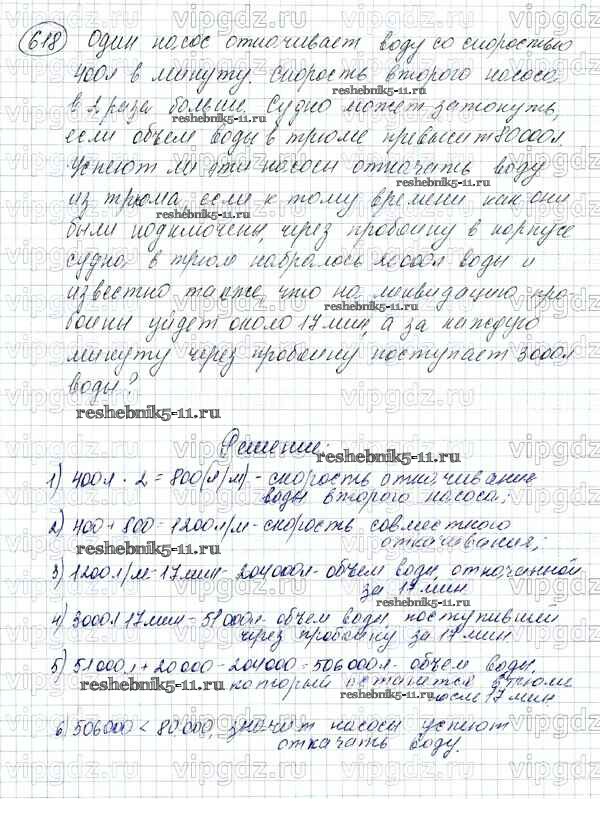 618 Один насос откачивает воду со скоростью
400л в минуту. Скорость второго насоса
в 2 раза больше. Судно может затонуть,
если объем воды в трюме превысит 80000л.
Успеют ли эти насосы откачать воду
из трюма, если к тому времени как они
были подключены, через пробоину в корпусе
судна в трюм набралось 20000л воды и
известно также, что на ликвидацию про-
боины уйдет около 17 мин, а за каждую
минуту через пробоину поступает 3000л
воды?
reshebnik5-11.ru
Решение:
1) 400л · 2 = 800(л/м) - скорость откачивание
воды второго насоса;
2) 400 + 800 = 1200л/м - скорость совместного
откачивания;
3) 1200л/м = 17мин = 204000л - объем воды, откачанной
за 17 мин
4) 3000л 17мин = 51000л - объем воды, поступившей
через пробоину за 17 мин
5) 51000л + 20000 - 204000 = 506000л - объем воды,
который останется в трюме
после 17 мин.
6 506000 < 80000, значит насосы успеют
откачать воду.